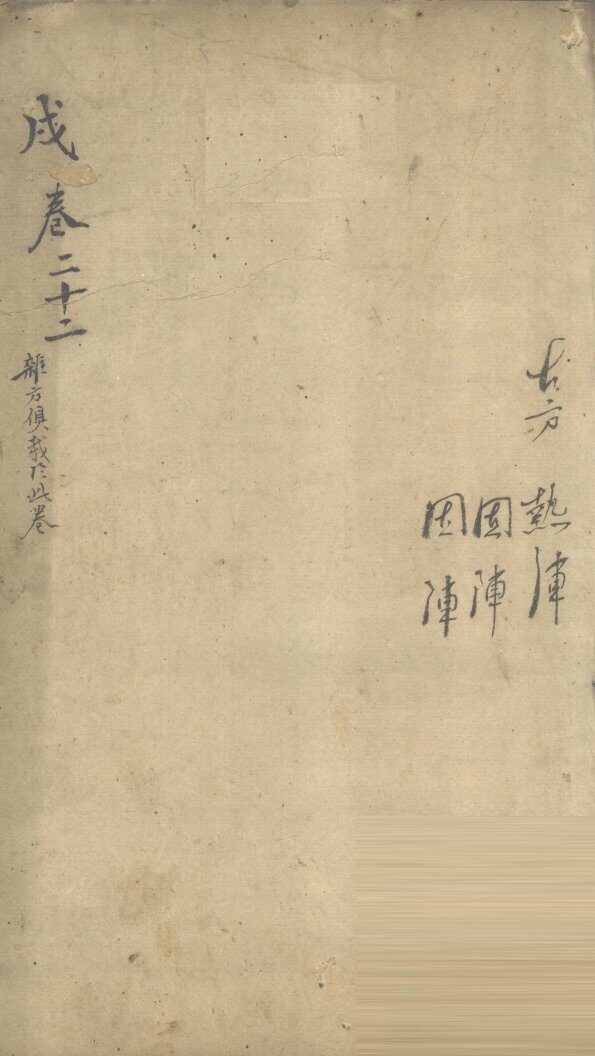 古方 熱陣
固陣
因陣
戌 卷二十二
雜方俱載於此卷